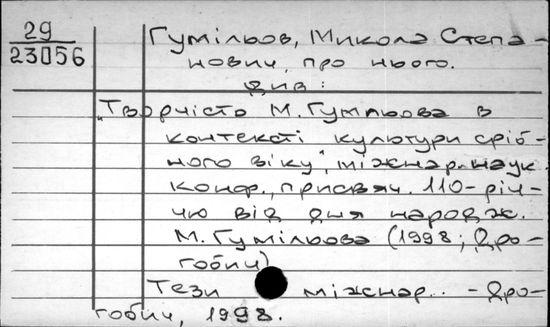 29
23056
Гумільов, Микола Степа-
нович, про нього.
див:
„Творчість М. Гумільова в
контексті культури сріб-
ного віку", міжнар. наук.
конф., присвяч. 110-річ-
чю від дня народж.
М. Гумільова (1998; Дро-
гобич)
Тези міжнар.. - Дро-
гобич, 1998.